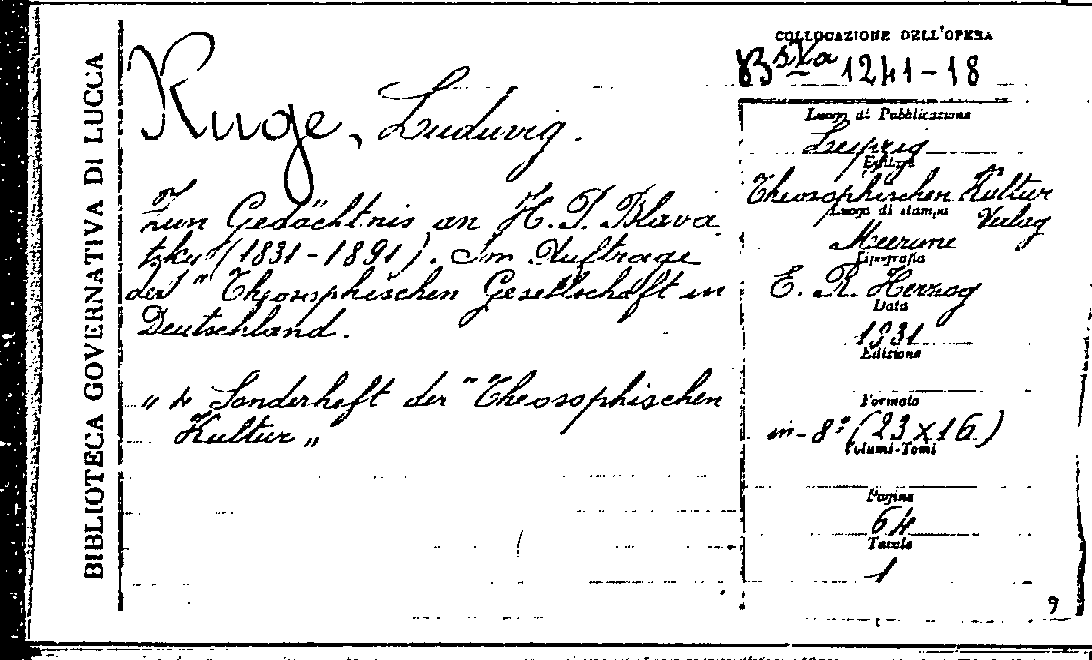 BIBLIOTECA GOVERNATIVA DI LUCCA
COLLOCAZIONE DELL'OPERA
1241-18
Ruge, Ludwig.
Zum Gedächtnis an H. P. Blava
tzky (1831-1891). Im Auftrage
der "Theosophischen Gesellschaft in
Deutschland.
„ 4 Sonderheft der "Theosophischen
Kultur „
Luogo di Pubblicazione
Leipzig
Editore
Theosophischen Kultur
Verlag
Luogo di stampa
Meerane
Tipografia
E. R. Herzog
Data
1931
Edizione
Formato
in-8° (23x16)
Volumi-Tomi
Pagine
64
Tavole
1
9